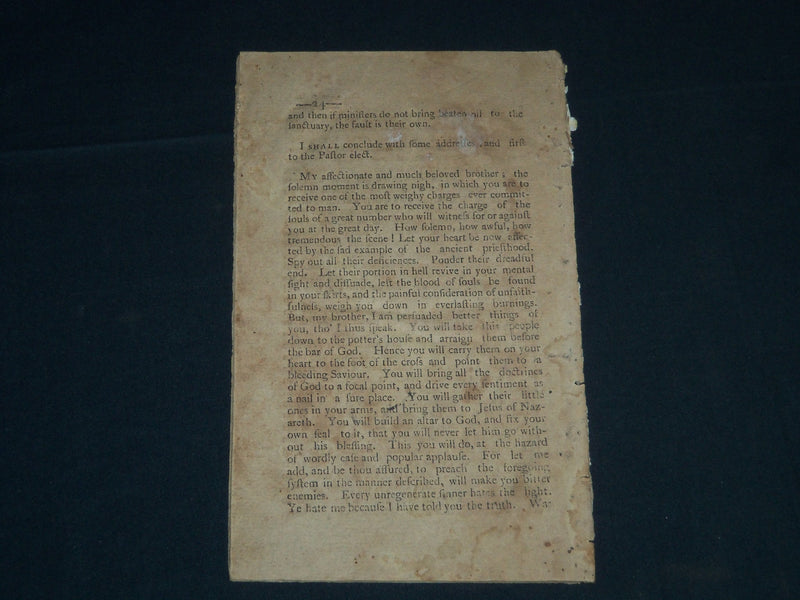 —24—
and then if miniſters do not bring beaten oil to the
ſanctuary, the fault is their own.
I SHALL conclude with ſome addreſſes, and firſt
to the Paſtor elect.
MY affectionate and much beloved brother; the
ſolemn moment is drawing nigh, in which you are to
receive one of the moſt weighy charges ever commit-
ted to man. You are to receive the charge of the
ſouls of a great number who will witneſs for or againſt
you at the great day. How ſolemn, how awful, how
tremendous the ſcene! Let your heart be now affec-
ted by the ſad example of the ancient prieſthood.
Spy out all their deficiences. Ponder their dreadful
end. Let their portion in hell revive in your mental
ſight and diſſuade, leſt the blood of ſouls be found
in your ſkirts, and the painful conſideration of unfaith-
fulneſs, weigh you down in everlaſting burnings.
But, my brother, I am perſuaded better things of
you, tho' I thus ſpeak. You will take this people
down to the potter's houſe and arraign them before
the bar of God. Hence you will carry them on your
heart to the foot of the croſs and point them to a
bleeding Saviour. You will bring all the doctrines
of God to a focal point, and drive every ſentiment as
a nail in a ſure place. You will gather their little
ones in your arms, and bring them to Jeſus of Naz-
areth. You will build an altar to God, and fix your
own ſeal to it, that you will never let him go with-
out his bleſſing. This you will do, at the hazard
of wordly eaſe and popular applauſe. For let me
add, and be thou aſſured, to preach the foregoing
ſyſtem in the manner deſcribed, will make you bitter
enemies. Every unregenerate ſinner hates the light.
Ye hate me becauſe I have told you the truth. Wa-